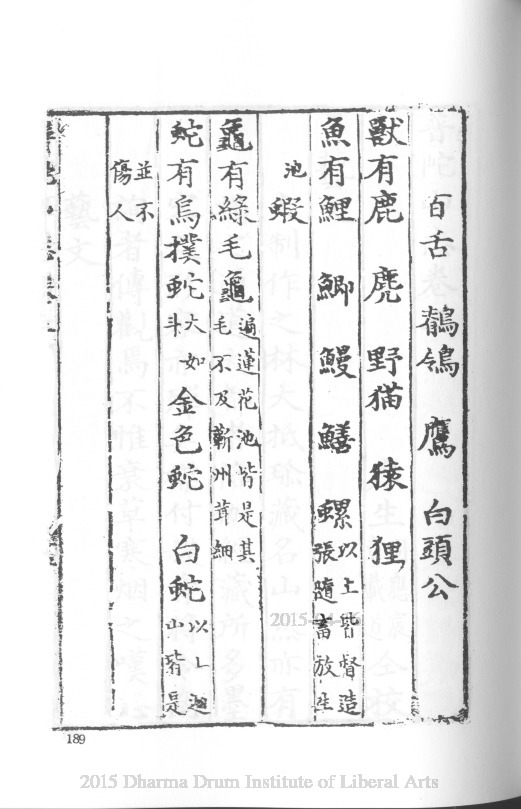 百舌 鶺鴒 鷹 白頭公
獸有鹿 麂 野猫 猿 狸
魚有鯉 鯽 鰻 鱔 螺 以上皆督造張隨畜放生
池 蝦
龜有綠毛龜 遍蓮花池皆是其毛不及蘄州茸細
蛇有烏撲蛇 大如斗 金色蛇 白蛇 以上遍山皆是
並不傷人
189
2015 Dharma Drum Institute of Liberal Arts